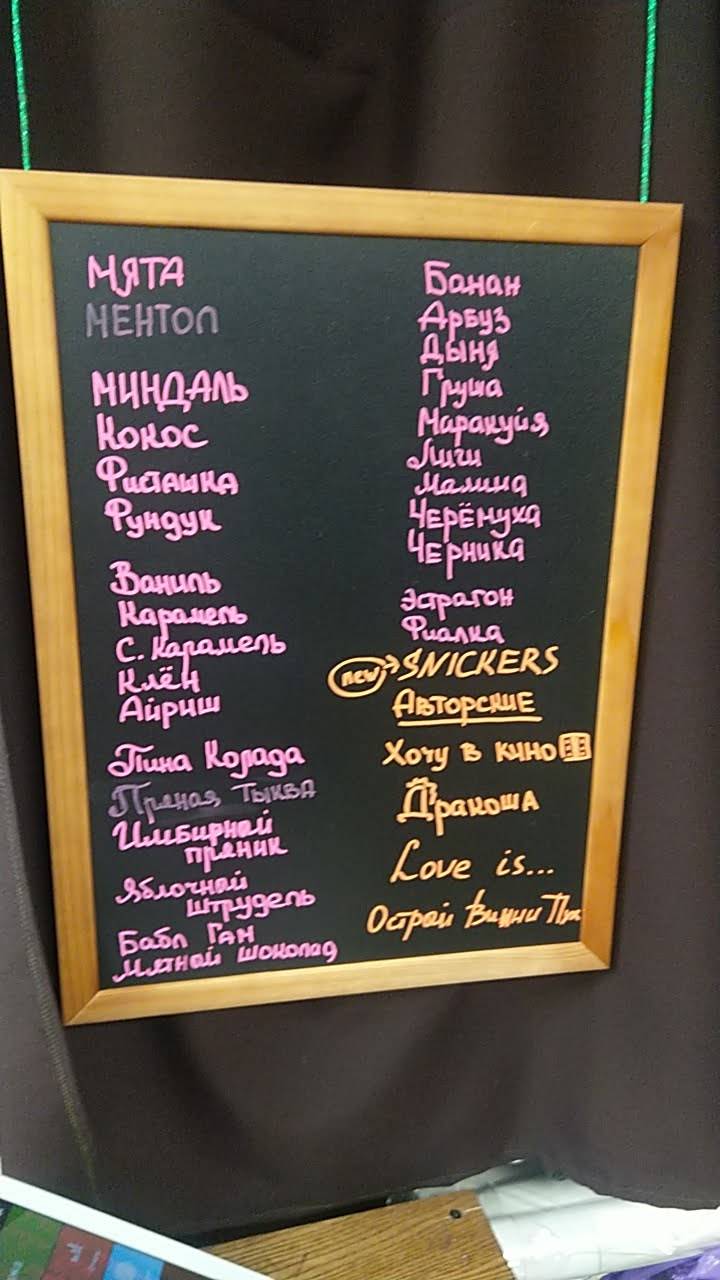 МЯТА
МЕНТОЛ
МИНДАЛЬ
КОКОС
Фисташка
Фундук
Ваниль
Карамель
С. Карамель
Клён
Айриш
Пина Колада
Пряная тыква
Имбирной
пряник
Яблочный
штрудель
Бабл Гам
Мятной шоколад
Банан
Арбуз
Дыня
Груша
Маракуйя
Личи
Малина
Черёмуха
Черника
Эстрагон
Фиалка
new → SNICKERS
Авторские
Хочу в кино
Дракоша
Love is...
Острый Винни Пух